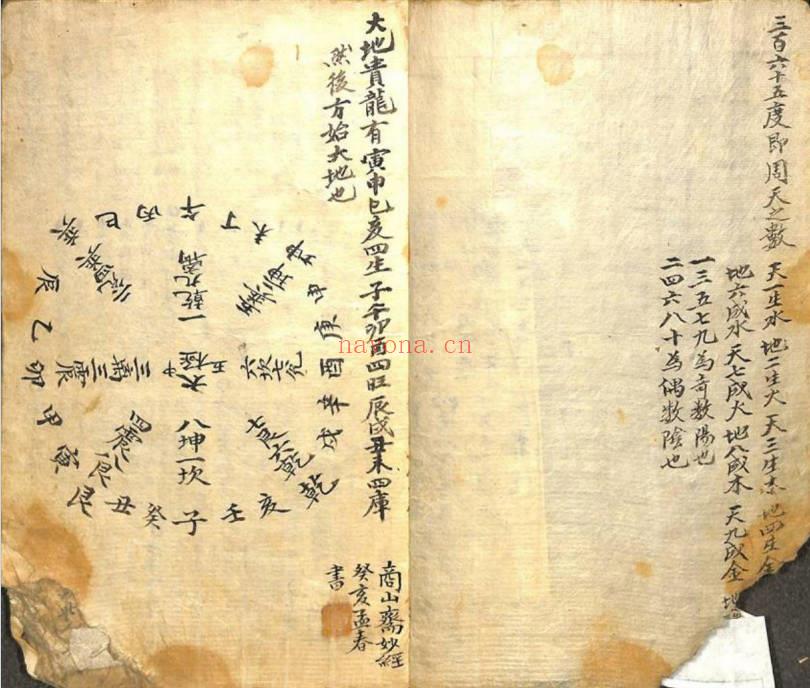 三百六十五度即周天之數
天一生水 地二生火 天三生木 地四生金
地六成水 天七成火 地八成木 天九成金 地
一三五七九為奇數陽也
二四六八十為偶數陰也
大地貴龍有寅申巳亥四生子午卯酉四旺辰戌丑未四庫
然後方始大地也
午丁未坤申庚酉辛戌乾亥壬子癸丑艮寅甲卯乙辰巽巳丙
一乾九离
六坎七兌
八坤一坎
四震八艮
三離三震
太極
中五
商山齋妙經
癸亥孟春
書
nayona.cn